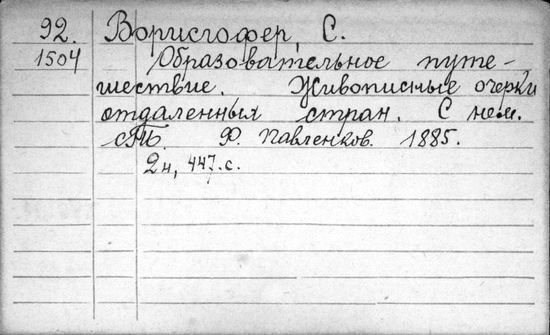 92. Ворисгофер, С.
1504 Образовательное путе-
шествие. Живописные очерки
отдаленных стран. С нем.
СПБ. Ф. Павленков. 1885.
2н, 447.с.